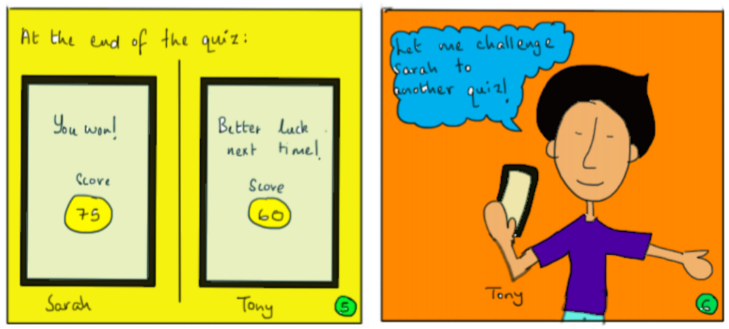 At the end of the quiz:
You won!
Score
75
Sarah
Better luck
next time!
Score
60
Tony
5
Let me challenge
Sarah to
another quiz!
Tony
6